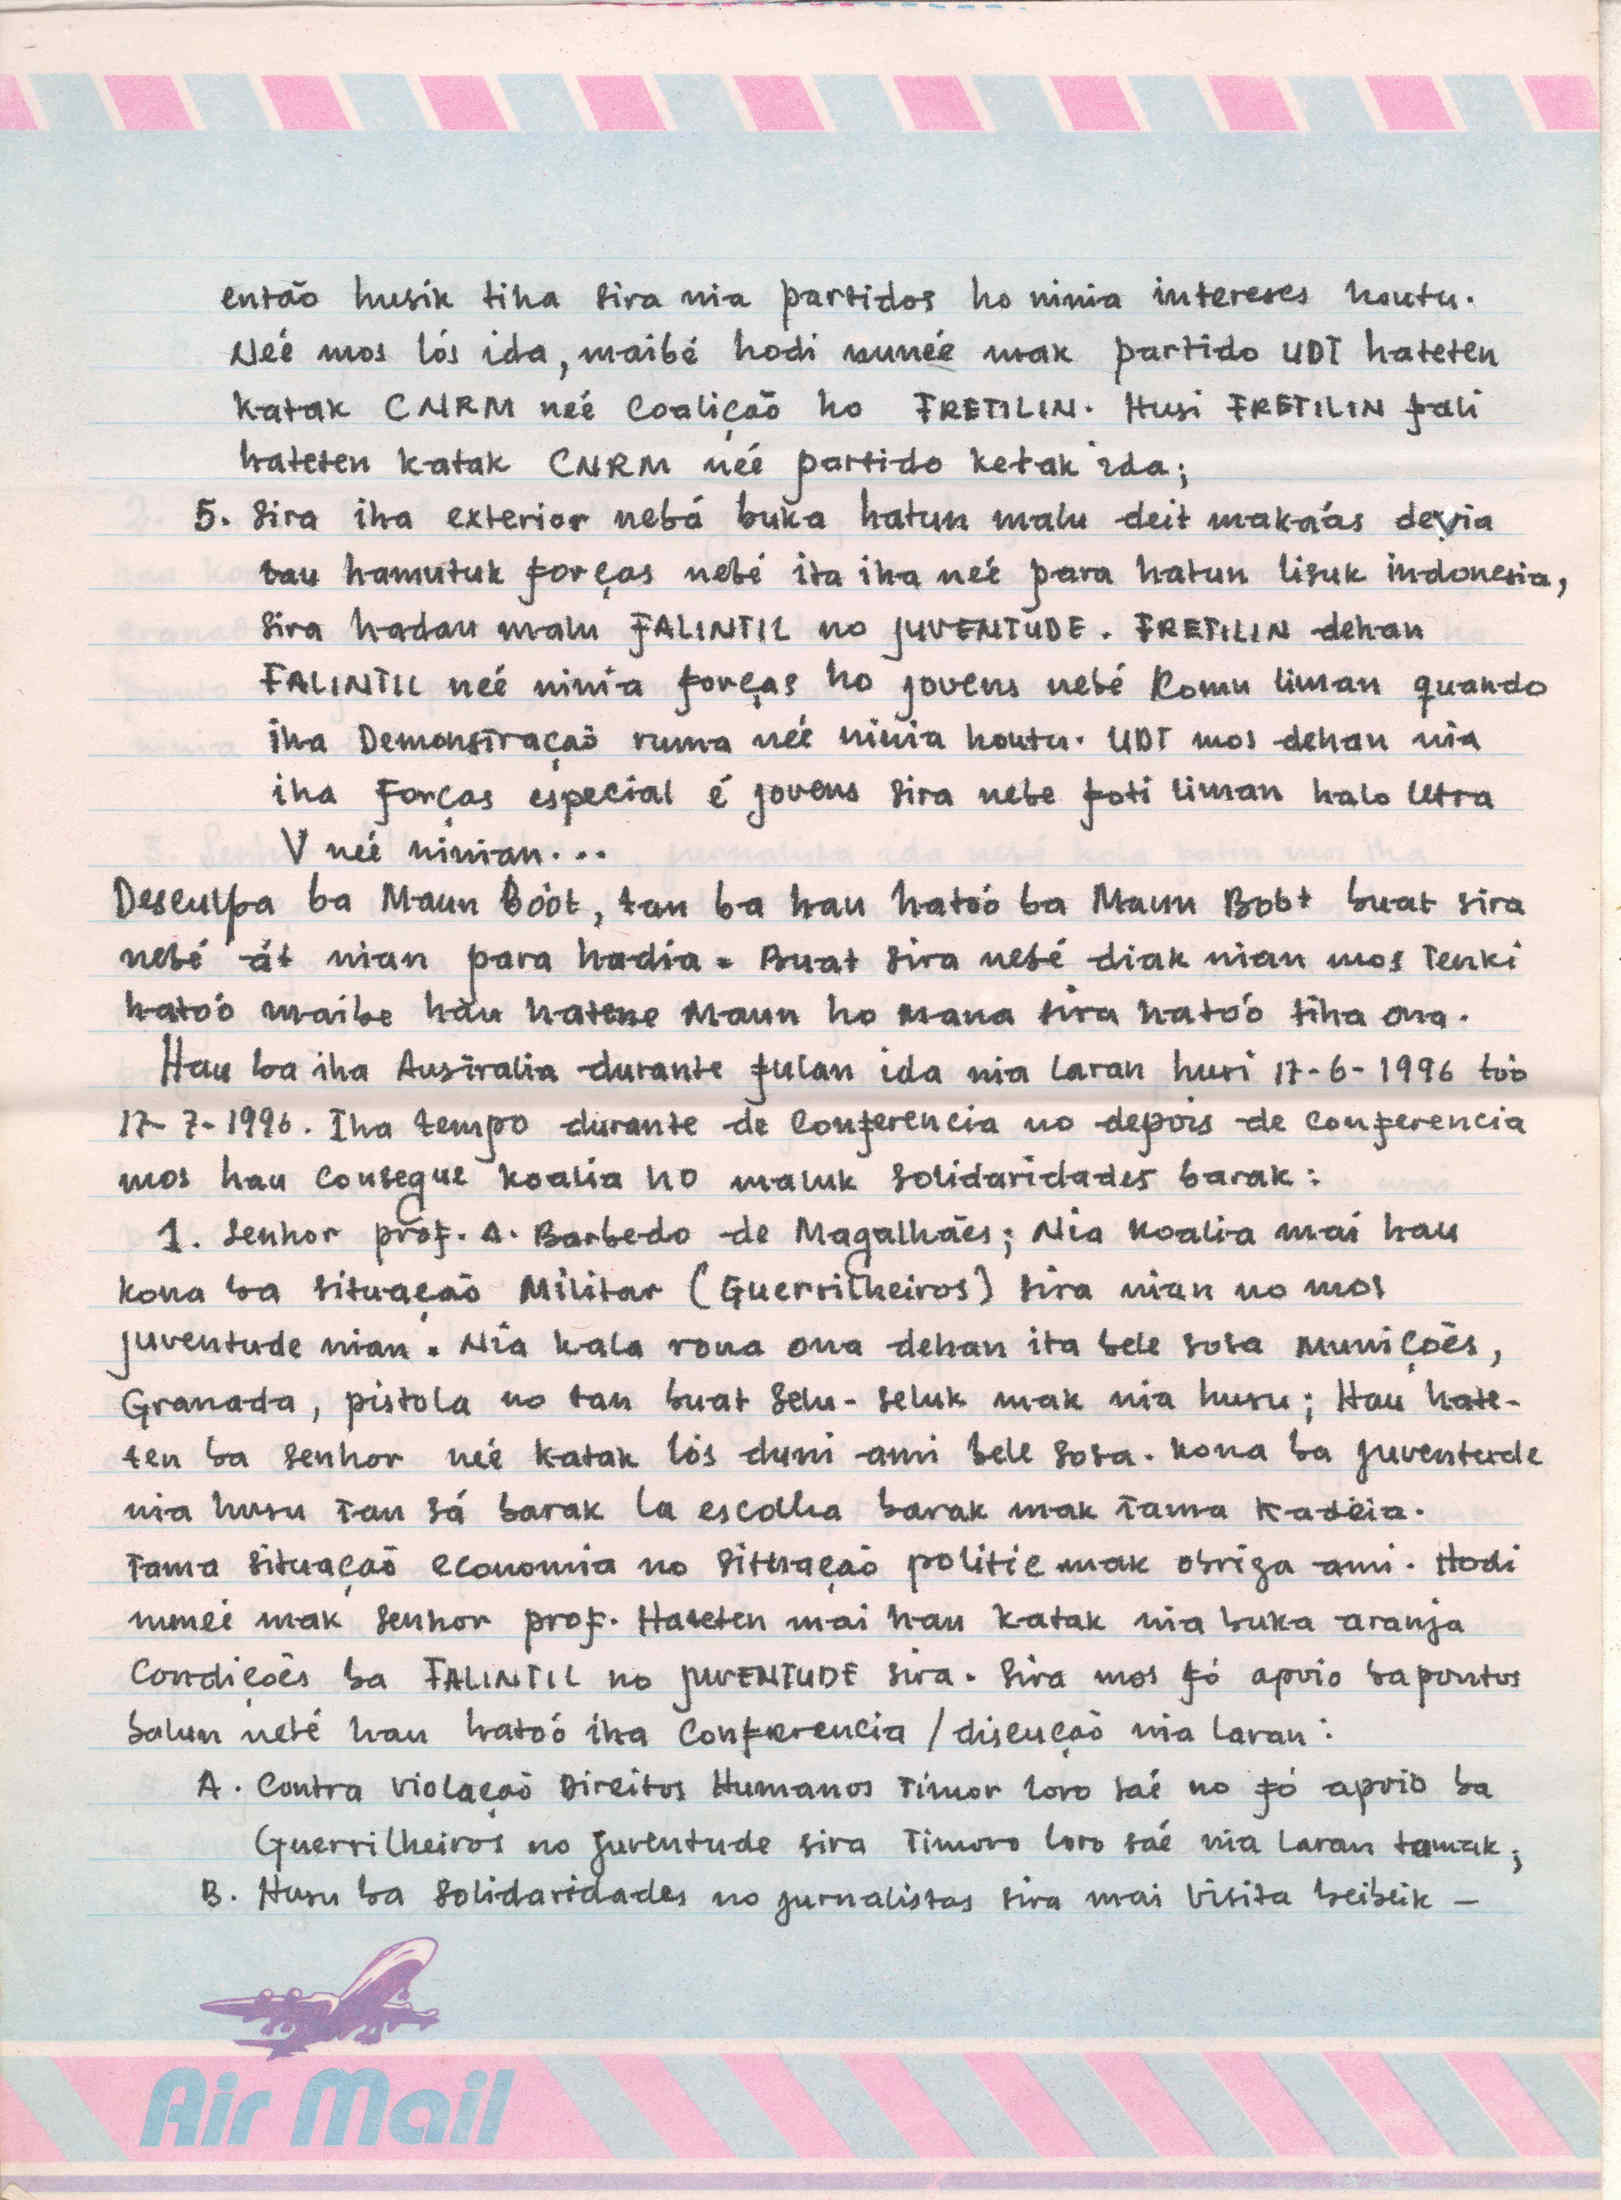 então husik tiha sira nia partidos ho ninia intereses houtu.
Neé mos lós ida, maibé hodi nuneé mak partido UDT hateten
katak CNRM neé Coalição ho FRETILIN. Husi FRETILIN fali
hateten katak CNRM neé partido ketak ida;
5. Sira iha exterior nebá buka hatun malu deit makaás devia
tau hamutuk forças nebé ita iha neé para hatun lisuk indonesia,
sira hadau malu FALINTIL no JUVENTUDE. FRETILIN dehan
FALINTIL neé ninia forças ho jovens nebé Komu liman quando
iha Demonstração ruma neé ninia houtu. UDT mos dehan nia
iha forças especial é jovens sira nebe foti liman halo letra
V neé ninian...
Desculpa ba Maun Boót, tan ba hau hatoó ba Maun Boót buat sira
nebé át nian para hadia. Buat sira nebé diak nian mos Tenki
hatoó maibe hau hatene Maun ho Mana sira hatoó tiha ona.
Hau ba iha Australia durante fulan ida nia laran husi 17-6-1996 too
17-7-1996. Iha tempo durante de Conferencia no depois de Conferencia
mos hau Consegue koalia ho maluk solidaridades barak:
1. Senhor prof. A. Barbedo de Magalhães; Nia koalia mai hau
kona ba situação Militar (Guerrilheiros) sira nian no mos
juventude nian. Nia kala rona ona dehan ita bele sosa Munições,
Granada, pistola no tan buat selu-seluk mak nia husu; Hau hate-
ten ba senhor neé katak lós duni ami bele sosa. Kona ba juventude
nia husu Tan sá barak la escolha barak mak Tama Kadeia.
Tama situação economia no situação politic mak obriga ami. Hodi
nuneé mak senhor prof. Hateten mai hau katak nia buka aranja
Condições ba FALINTIL no JUVENTUDE sira. Sira mos fó apoio ba pontos
balun nebé hau hatoó iha Conferencia / discução nia laran:
A. Contra violação Direitos Humanos Timor loro saé no fó apoio ba
Guerrilheiros no juventude sira Timoro loro saé nia laran tomak;
B. Husu ba solidaridades no jurnalistas sira mai visita beibeik -
Air Mail